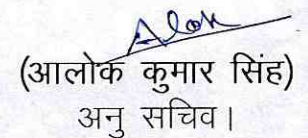 Alok
(आलोक कुमार सिंह)
अनु सचिव।